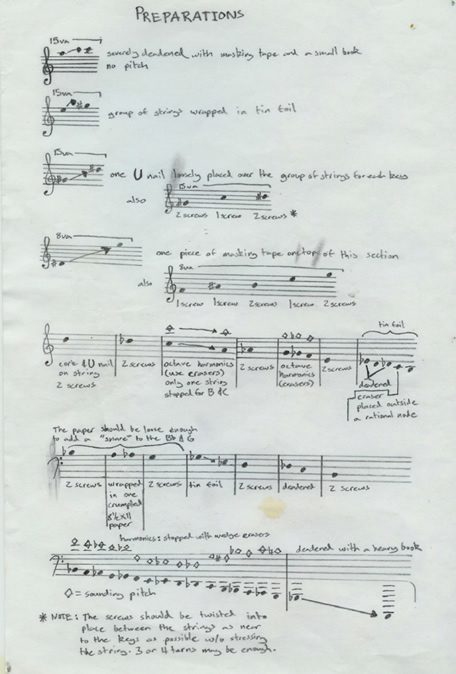 PREPARATIONS
15va
severely deadened with masking tape and a small book
no pitch
15va
group of strings wrapped in tin foil
15va
one U nail loosely placed over the group of strings for each keys
also
15va
2 screws 1 screw 2 screws *
8va
one piece of masking tape on top of this section
also
8va
1 screw 1 screw 2 screws 1 screw 2 screws
tin foil
cork & U nail
on string
2 screws
2 screws
octave harmonics
(use erasers)
only one string
stopped for B & C
2 screws
octave
harmonics
(erasers)
2 screws
deadened
eraser
placed outside
a rational node
The paper should be loose enough
to add a "snare" to the Bb & G
2 screws
wrapped
in one
crumpled
8½ x 11
paper
2 screws
tin foil
2 screws
deadened
2 screws
harmonics: stopped with wedge erasers
deadened with a heavy book
◇ = sounding pitch
* NOTE: The screws should be twisted into
place between the strings as near
to the keys as possible w/o stressing
the string. 3 or 4 turns may be enough.